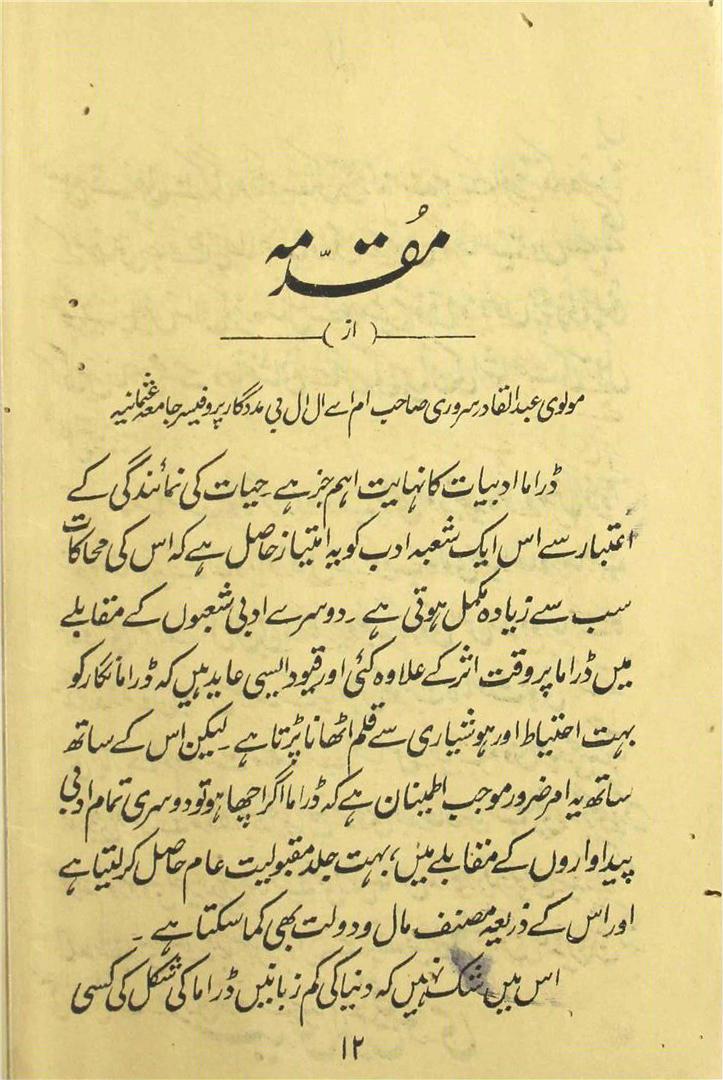 مُقدّمہ
(از)
مولوی عبدالقادر سروری صاحب ام اے ال ال بی مددگار پروفیسر جامعہ عثمانیہ
ڈراما ادبیات کا نہایت اہم جز ہے۔ حیات کی نمائندگی کے
اعتبار سے اس ایک شعبہ ادب کو یہ امتیاز حاصل ہے کہ اس کی محاکات
سب سے زیادہ مکمل ہوتی ہے۔ دوسرے ادبی شعبوں کے مقابلے
میں ڈراما پر وقت اثر کے علاوہ کئی اور قیود ایسی عاید ہیں کہ ڈراما نگار کو
بہت احتیاط اور ہوشیاری سے قلم اٹھانا پڑتا ہے۔ لیکن اس کے ساتھ
ساتھ یہ امر ضرور موجب اطمینان ہے کہ ڈراما اگر اچھا ہو تو دوسری تمام ادبی
پیداواروں کے مقابلے میں، بہت جلد مقبولیت عام حاصل کر لیتا ہے
اور اس کے ذریعہ مصنف مال و دولت بھی کما سکتا ہے۔
اس میں شک نہیں کہ دنیا کی کم زبانیں ڈراما کی شکل کی کسی
۱۲